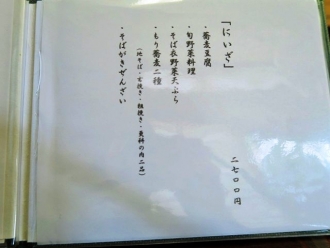 「にいざ」
・蕎麦豆腐
・旬野菜料理
・そば衣野菜天ぷら
・もり蕎麦二種
（地そば・玄挽き・粗挽き・更科の内二品）
・そばがきぜんざい
二七〇〇円